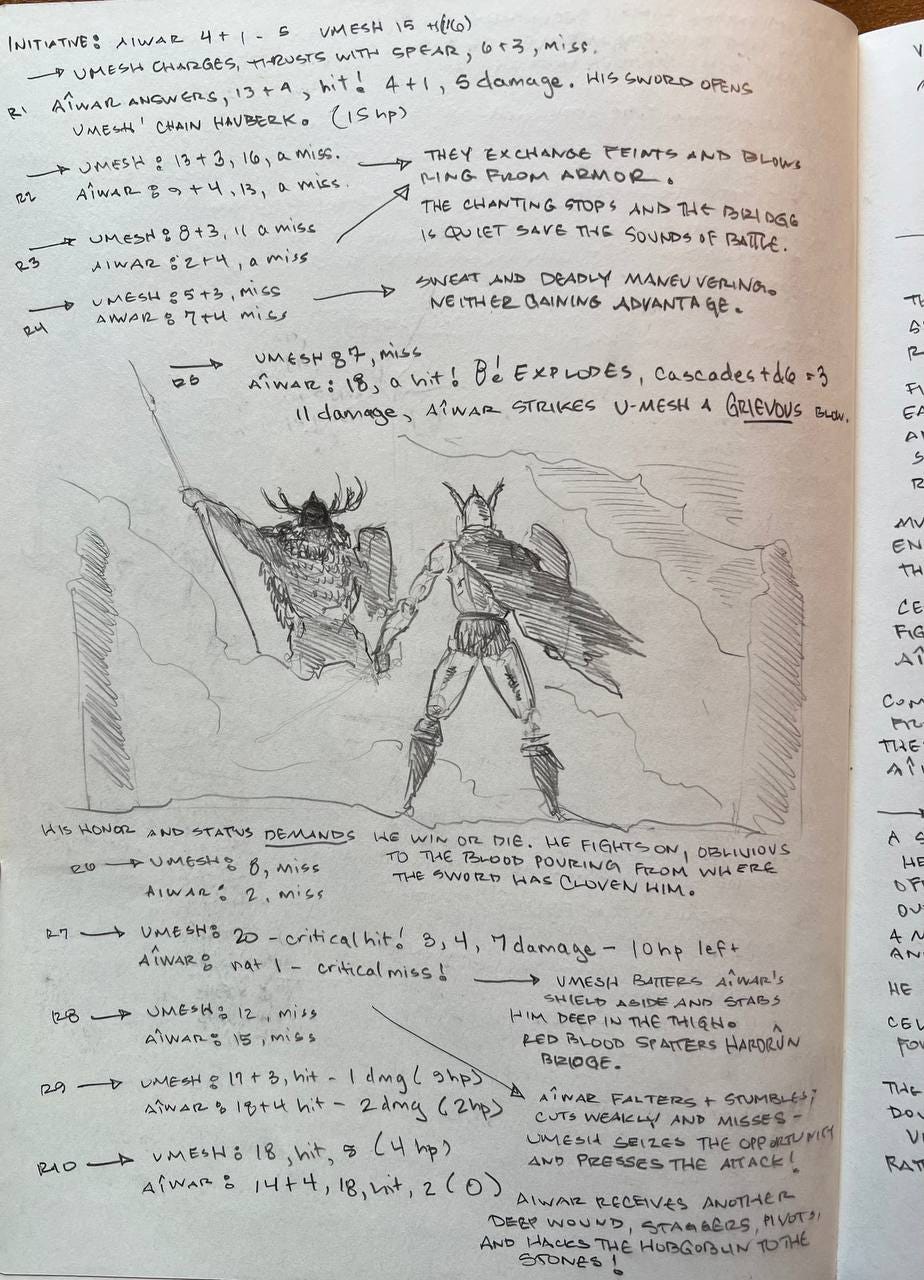 INITIATIVE: AIWAR 4+1 - 5 UMESH 15 +1(16)
→ UMESH CHARGES, THRUSTS WITH SPEAR, 6+3, miss.
R1 AÎWAR ANSWERS, 13+4, hit! 4+1, 5 damage. HIS SWORD OPENS
UMESH' CHAIN HAUBERK. (15hp)
→ UMESH: 13+3, 16, a miss. →
R2 AÎWAR: 9+4, 13, a miss.
THEY EXCHANGE FEINTS AND BLOWS
RING FROM ARMOR.
THE CHANTING STOPS AND THE BRIDGE
IS QUIET SAVE THE SOUNDS OF BATTLE.
→ UMESH: 8+3, 11 a miss
R3 AIWAR: 2+4, a miss
→ UMESH: 5+3, miss →
R4 AIWAR: 7+4 miss
SWEAT AND DEADLY MANEUVERING.
NEITHER GAINING ADVANTAGE.
→ UMESH: 7, miss
R5 AÎWAR: 18, a hit! 8! EXPLODES, cascades +d6 = 3
11 damage, AÎWAR STRIKES U-MESH A GRIEVOUS BLOW.
HIS HONOR AND STATUS DEMANDS HE WIN OR DIE. HE FIGHTS ON, OBLIVIOUS
TO THE BLOOD POURING FROM WHERE
THE SWORD HAS CLOVEN HIM.
R6 → UMESH: 8, miss
AIWAR: 2, miss
R7 → UMESH: 20 - critical hit! 3, 4, 7 damage - 10hp left
AÎWAR: nat 1 - critical miss! →
UMESH BATTERS AÎWAR'S
SHIELD ASIDE AND STABS
HIM DEEP IN THE THIGH.
RED BLOOD SPATTERS HARDRÛN
BRIDGE.
R8 → UMESH: 12, miss
AÎWAR: 15, miss
R9 → UMESH: 17+3, hit - 1 dmg (9hp)
AÎWAR: 18+4 hit - 2 dmg (2hp)
AÎWAR FALTERS + STUMBLES;
CUTS WEAKLY AND MISSES -
UMESH SEIZES THE OPPORTUNITY
AND PRESSES THE ATTACK!
R10 → UMESH: 18, hit, (4 hp)
AÎWAR: 14+4, 18, hit, 2 (0)
AIWAR RECEIVES ANOTHER
DEEP WOUND, STAGGERS, PIVOTS,
AND HACKS THE HOBGOBLIN TO THE
STONES!